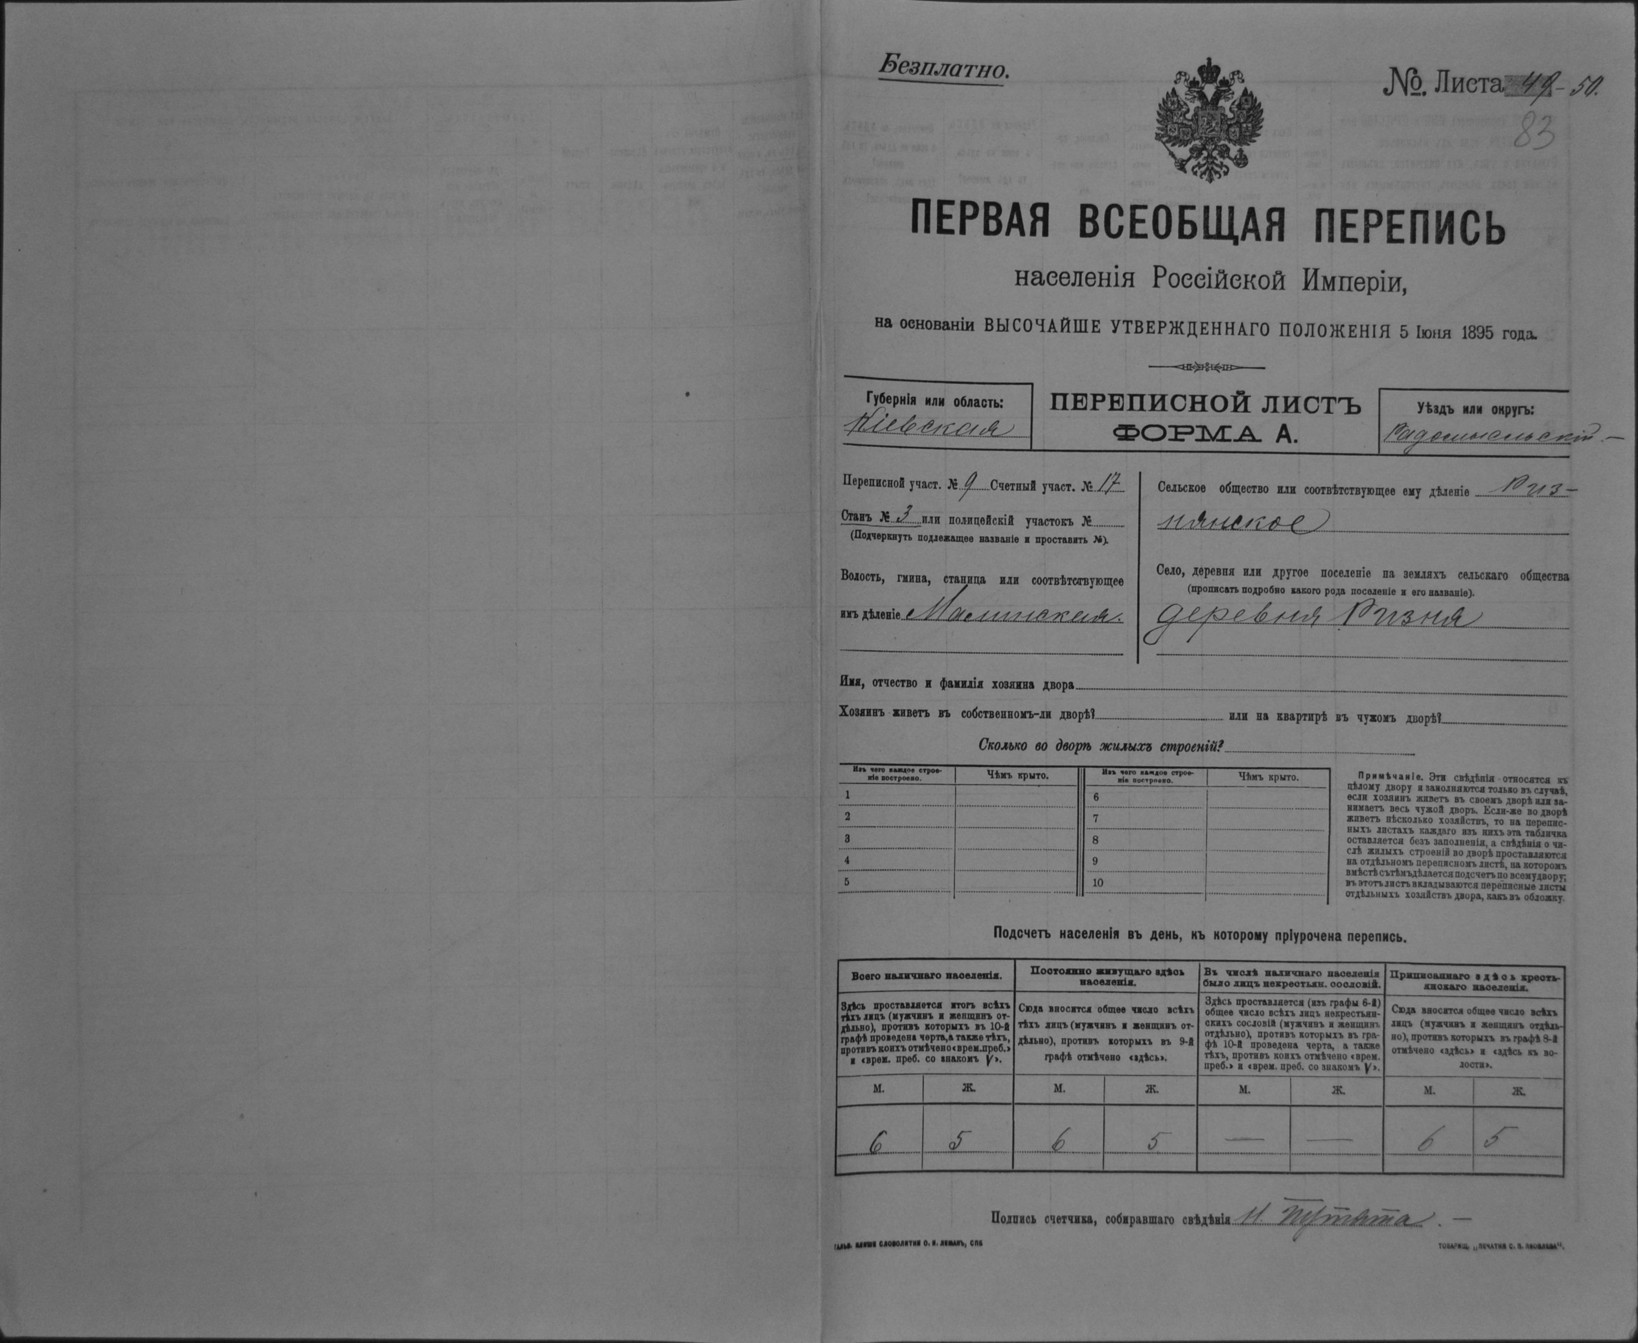 Безплатно.
№. Листа 49-50.
83
ПЕРВАЯ ВСЕОБЩАЯ ПЕРЕПИСЬ
населенія Россійской Имперіи,
на основаніи ВЫСОЧАЙШЕ УТВЕРЖДЕННАГО ПОЛОЖЕНІЯ 5 Іюня 1895 года.
Губернія или область:
Кіевская
ПЕРЕПИСНОЙ ЛИСТЪ
ФОРМА А.
Уѣздъ или округъ:
Радомысльскій
Переписной участ. № 9 Счетный участ. № 17
Станъ № 3 или полицейскій участокъ №
(Подчеркнуть подлежащее названіе и проставить №).
Волость, гмина, станица или соотвѣтствующее
имъ дѣленіе Малинская.
Сельское общество или соотвѣтствующее ему дѣленіе Риз-
нянское
Село, деревня или другое поселеніе на земляхъ сельскаго общества
(прописать подробно какого рода поселеніе и его названіе).
деревня Ризня
Имя, отчество и фамилія хозяина двора
Хозяинъ живетъ въ собственномъ-ли дворѣ? или на квартирѣ въ чужомъ дворѣ?
Сколько во дворѣ жилыхъ строеній?
Изъ чего каждое строе-
ніе построено.
Чѣмъ крыто.
1
2
3
4
5
Изъ чего каждое строе-
ніе построено.
Чѣмъ крыто.
6
7
8
9
10
Примѣчаніе. Эти свѣдѣнія относятся къ
цѣлому двору и заполняются только въ случаѣ,
если хозяинъ живетъ въ своемъ дворѣ или за-
нимаетъ весь чужой дворъ. Если-же во дворѣ
живетъ нѣсколько хозяйствъ, то на перепис-
ныхъ листахъ каждаго изъ нихъ эта табличка
оставляется безъ заполненія, а свѣдѣнія о чи-
слѣ жилыхъ строеній во дворѣ проставляются
на отдѣльномъ переписномъ листѣ, на которомъ
вмѣстѣ съ тѣмъ дѣлается подсчетъ по всему двору;
въ этотъ листъ вкладываются переписные листы
отдѣльныхъ хозяйствъ двора, какъ въ обложку.
Подсчетъ населенія въ день, къ которому пріурочена перепись.
Всего наличнаго населенія.
Здѣсь проставляется итогъ всѣхъ
тѣхъ лицъ (мужчинъ и женщинъ от-
дѣльно), противъ которыхъ въ 10-й
графѣ проведена черта, а также тѣхъ,
противъ коихъ отмѣчено «врем. преб.»
и «врем. преб. со знакомъ V».
М. Ж.
6 5
Постоянно живущаго здѣсь
населенія.
Сюда вносится общее число всѣхъ
тѣхъ лицъ (мужчинъ и женщинъ от-
дѣльно), противъ которыхъ въ 9-й
графѣ отмѣчено «здѣсь».
М. Ж.
6 5
Въ числѣ наличнаго населенія
было лицъ некрестьян. сословій.
Здѣсь проставляется (изъ графы 6-й)
общее число всѣхъ лицъ некрестьян-
скихъ сословій (мужчинъ и женщинъ
отдѣльно), противъ которыхъ въ гра-
фѣ 10-й проведена черта, а также
тѣхъ, противъ коихъ отмѣчено «врем.
преб.» и «врем. преб. со знакомъ V».
М. Ж.
— —
Приписаннаго здѣсь кресть-
янскаго населенія.
Сюда вносится общее число всѣхъ
лицъ (мужчинъ и женщинъ отдѣль-
но), противъ которыхъ въ графѣ 8-й
отмѣчено «здѣсь» и «здѣсь къ во-
лости».
М. Ж.
6 5
Подпись счетчика, собиравшаго свѣдѣнія И. Путята.
СЛОВОЛИТНЯ О. И. ЛЕМАНЪ, СПБ
ТОВАРИЩ. „ПЕЧАТНЯ С. П. ЯКОВЛЕВА".